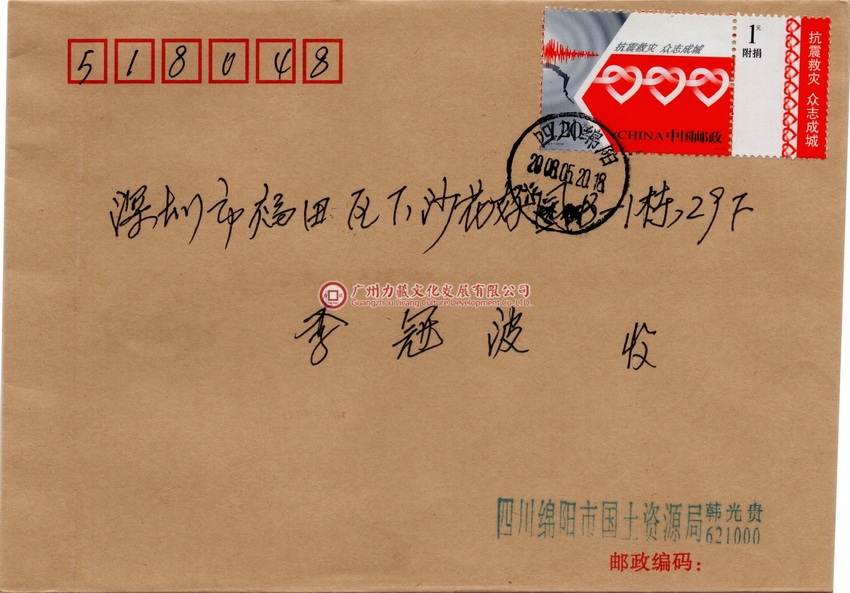 518048
抗震救灾 众志成城
1元
附捐
抗震救灾 众志成城
CHINA 中国邮政
四川绵阳
2008.05.20.18
深圳市福田区下沙花
广州力藏文化发展有限公司
Guangzhou Licang Culture Development Co.,LTD.
李冠波 收
四川绵阳市国土资源局 韩光贵
621000
邮政编码：